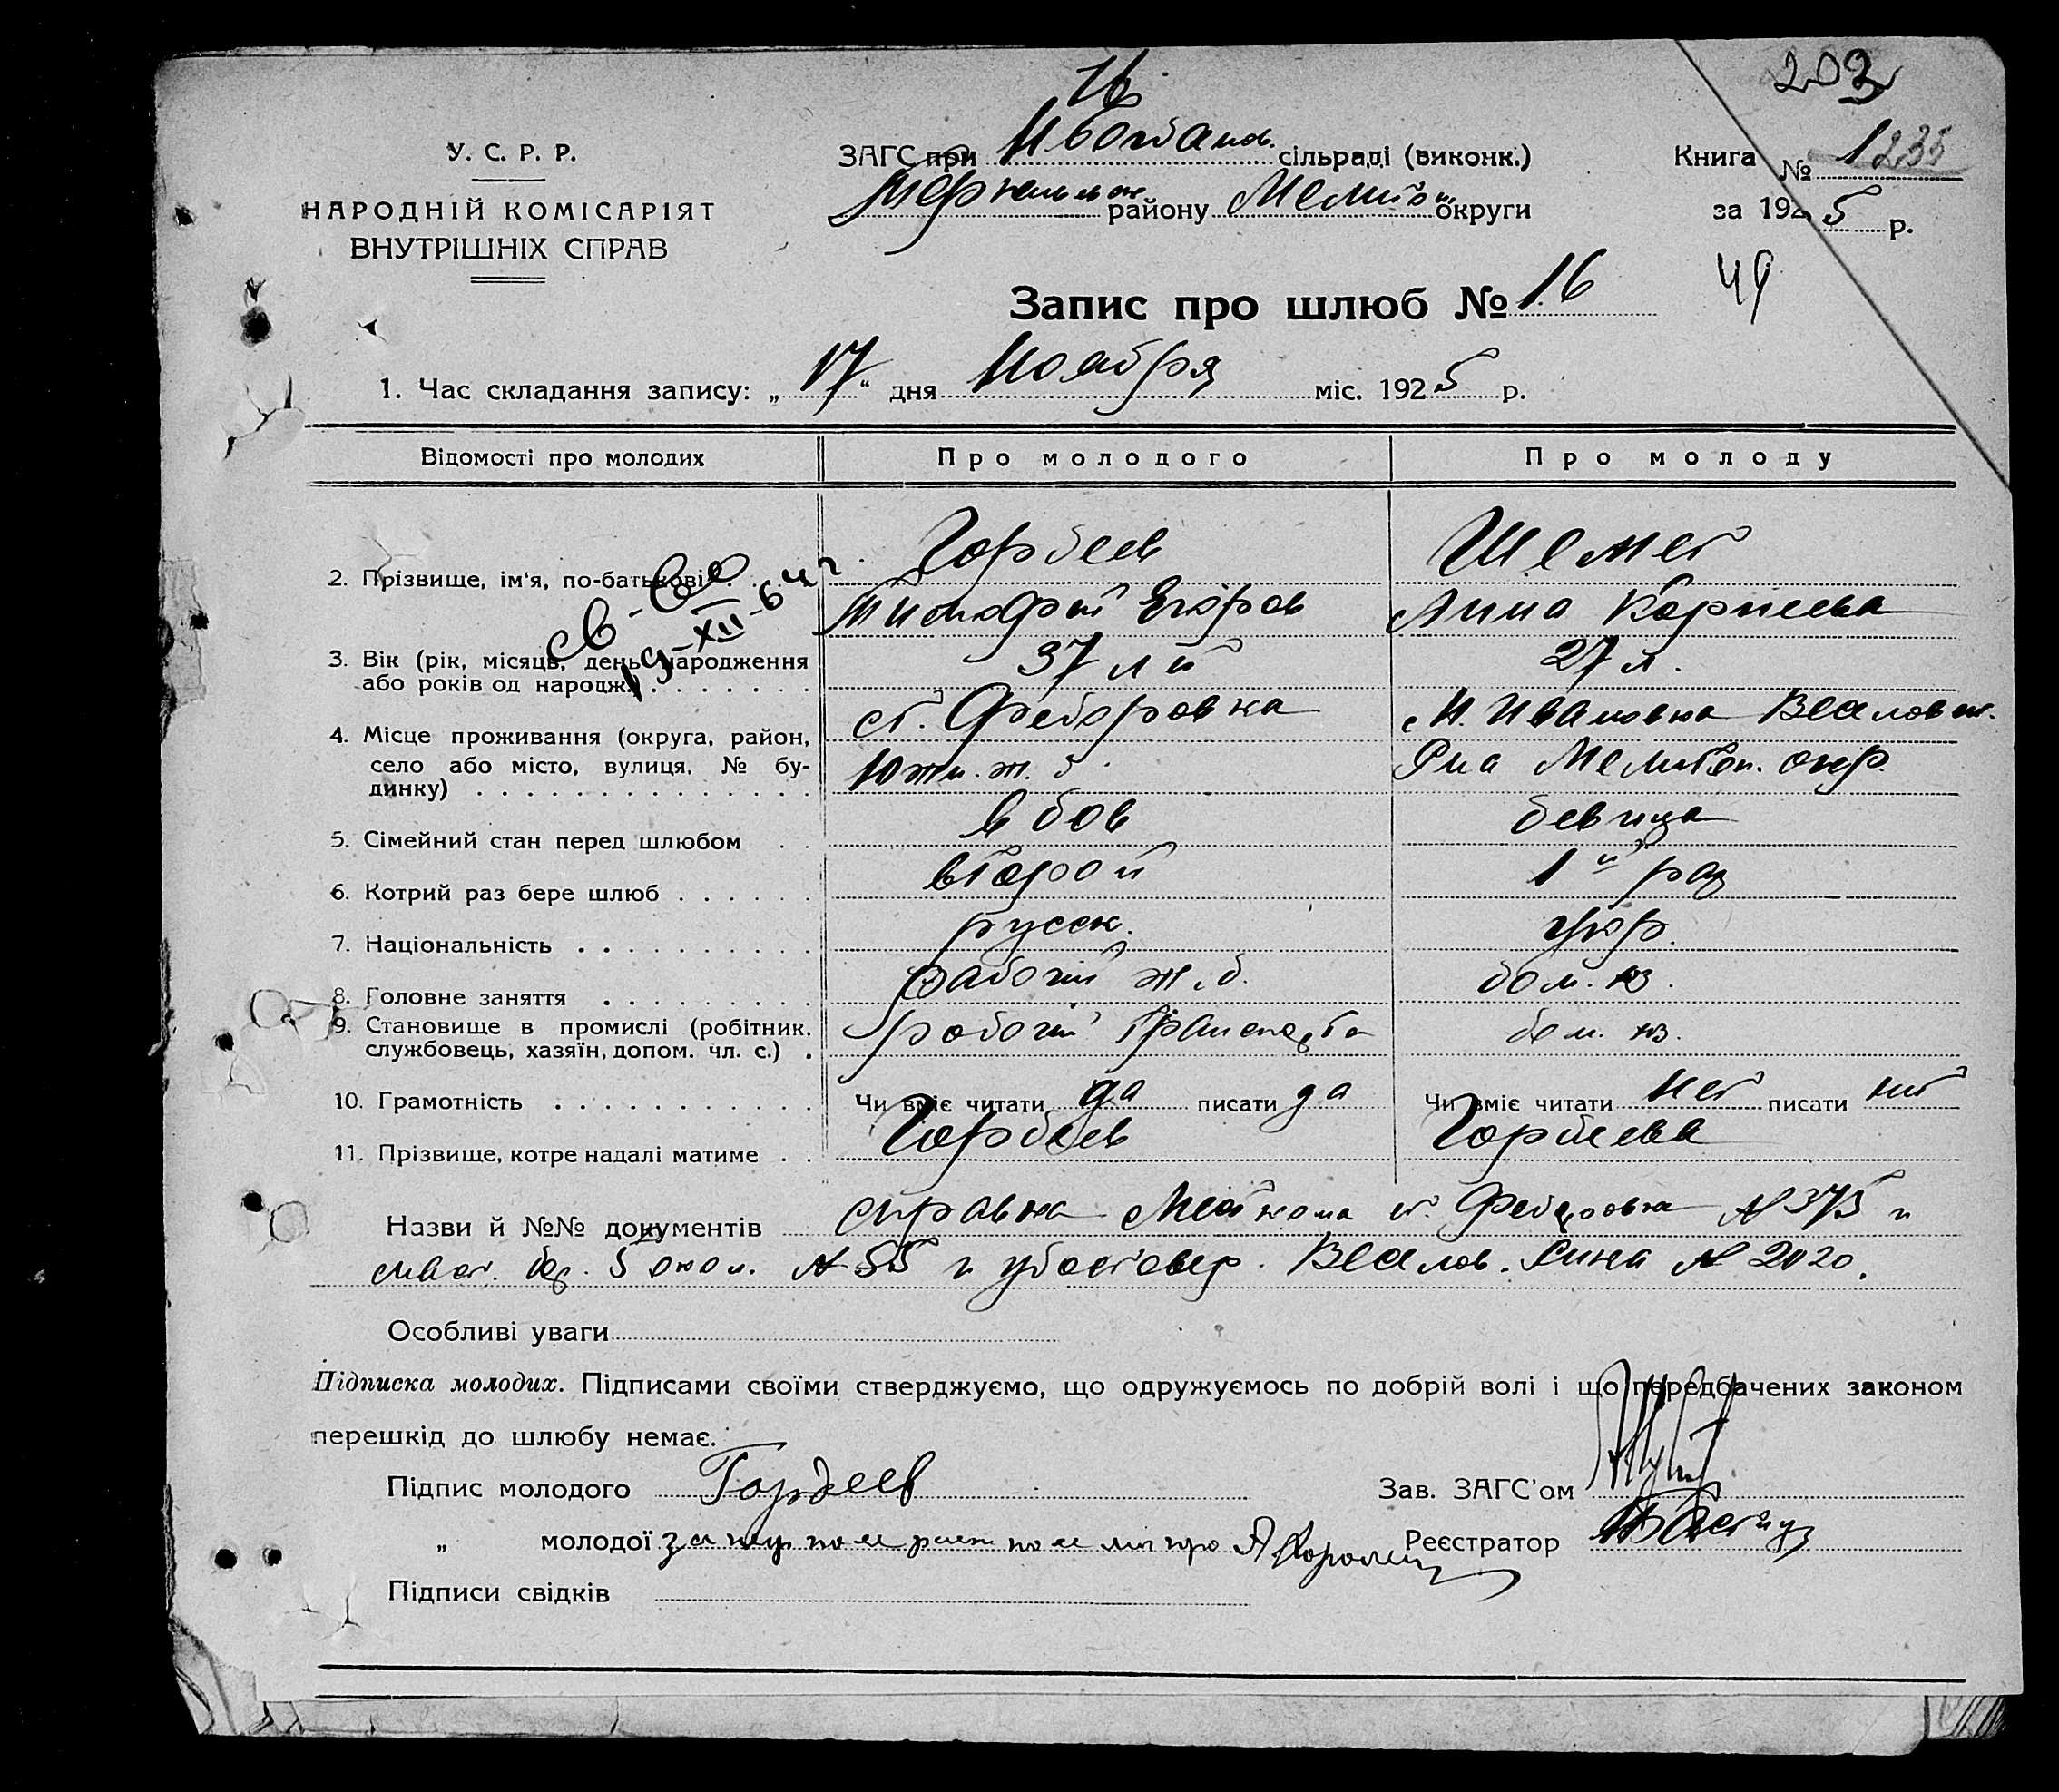 203
16
У. С. Р. Р.
НАРОДНІЙ КОМІСАРІЯТ
ВНУТРІШНІХ СПРАВ
ЗАГС при сільраді (виконк.)
району Мелитоп округи
Книга № 1 235
за 1925 р.
49
Запис про шлюб № 16
1. Час складання запису: „17“ дня Ноября міс. 1925 р.
Відомості про молодих Про молодого Про молоду
2. Прізвище, ім'я, по-батькові Гордеев Шемет
Тимофей Егоров Анна Корнеева
св-во
19-XII-64 г
3. Вік (рік, місяць, день народження
або років од народж.) 37 лет 27 л.
4. Місце проживання (округа, район,
село або місто, вулиця, № бу-
динку)
ст. Федоровка Н. Ивановка Веселовск.
Южн. ж. д. Р-на Мелитоп. окр.
5. Сімейний стан перед шлюбом вдов девица
6. Котрий раз бере шлюб второй 1й раз
7. Національність русск. укр.
8. Головне заняття рабочий ж.д. дом. хоз.
9. Становище в промислі (робітник,
службовець, хазяїн, допом. чл. с.) рабочий транспорта дом. хоз.
10. Грамотність Чи вміє читати да писати да Чи вміє читати нет писати нет
11. Прізвище, котре надалі матиме Гордеев Гордеева
Назви й №№ документів справка Месткома ст. Федоровка № 375 и
№ 55 и удостовер. Веселов. Рика № 2020.
Особливі уваги
Підписка молодих. Підписами своїми стверджуємо, що одружуємось по добрій волі і що передбачених законом
перешкід до шлюбу немає.
Підпис молодого Гордеев Зав. ЗАГС'ом
„ молодої Реєстратор
Підписи свідків